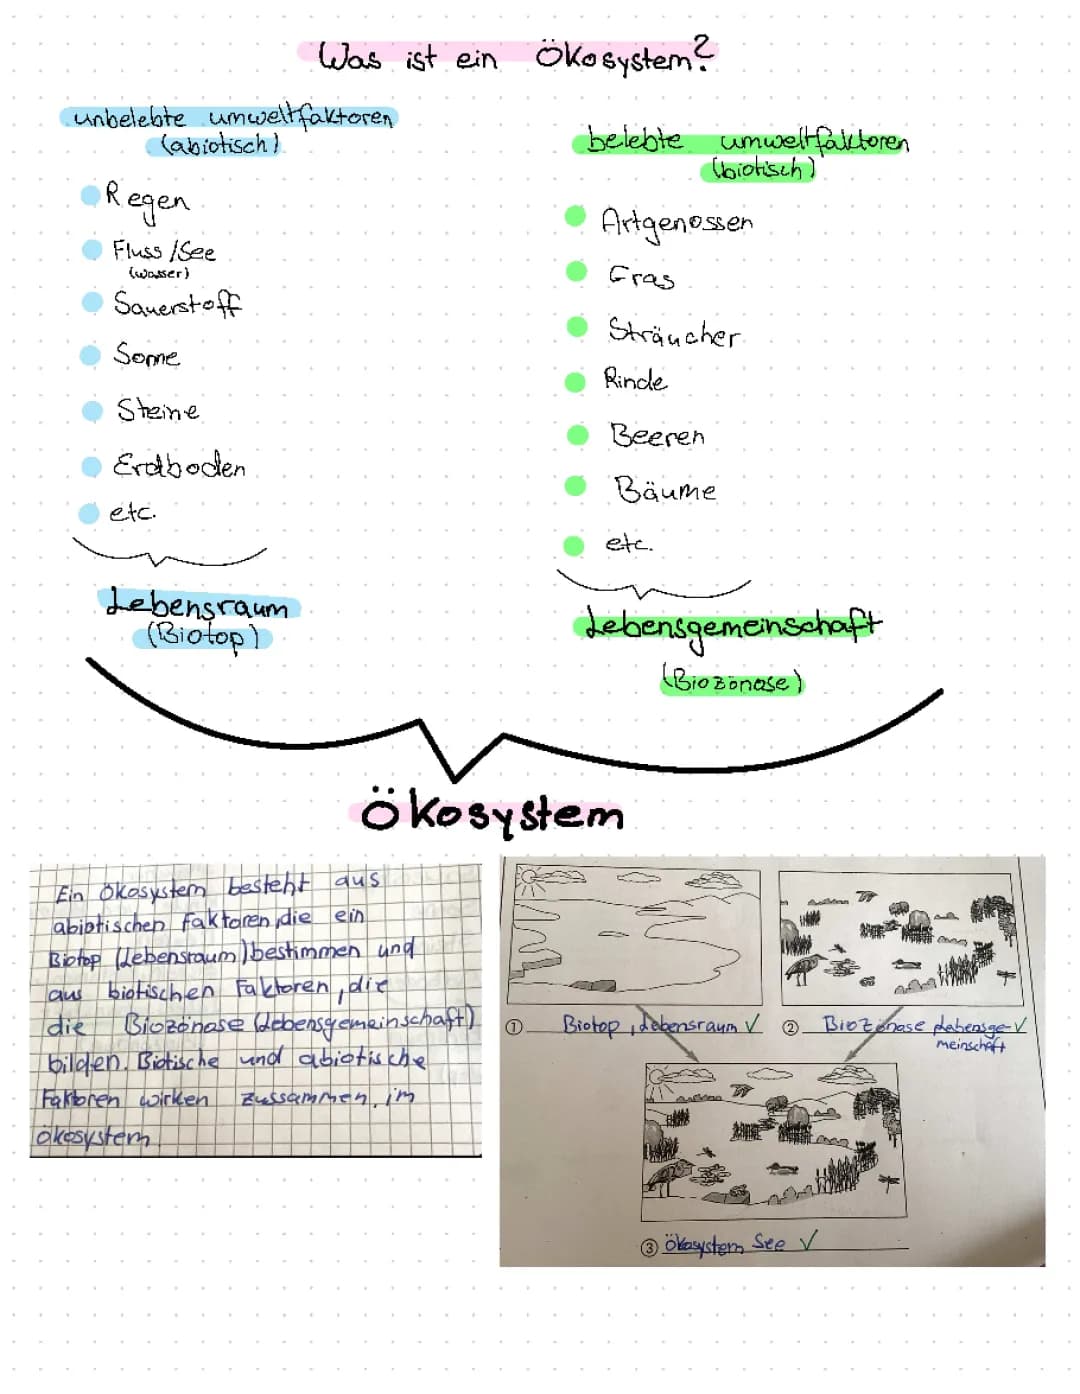 Was ist ein Ökosystem?
unbelebte umweltfaktoren
(abiotisch)
Regen
Fluss/See
(wasser)
Sauerstoff
Sonne
Steine
Erdboden
etc.
Lebensraum
(Biotop)
belebte umweltfaktoren
(biotisch)
Artgenossen
Gras
Sträucher
Rinde
Beeren
Bäume
etc.
Lebensgemeinschaft
(Biozönose)
Ökosystem
Ein Ökosystem besteht aus
abiotischen Faktoren, die ein
Biotop (Lebensraum) bestimmen und
aus biotischen Faktoren, die
die Biozönose (Lebensgemeinschaft)
bilden. Biotische und abiotische
Faktoren wirken zussammen im
ökosystem.
① Biotop, Lebensraum ✓
② Biozönose Lebensge- ✓
meinschaft
③ Ökosystem See ✓